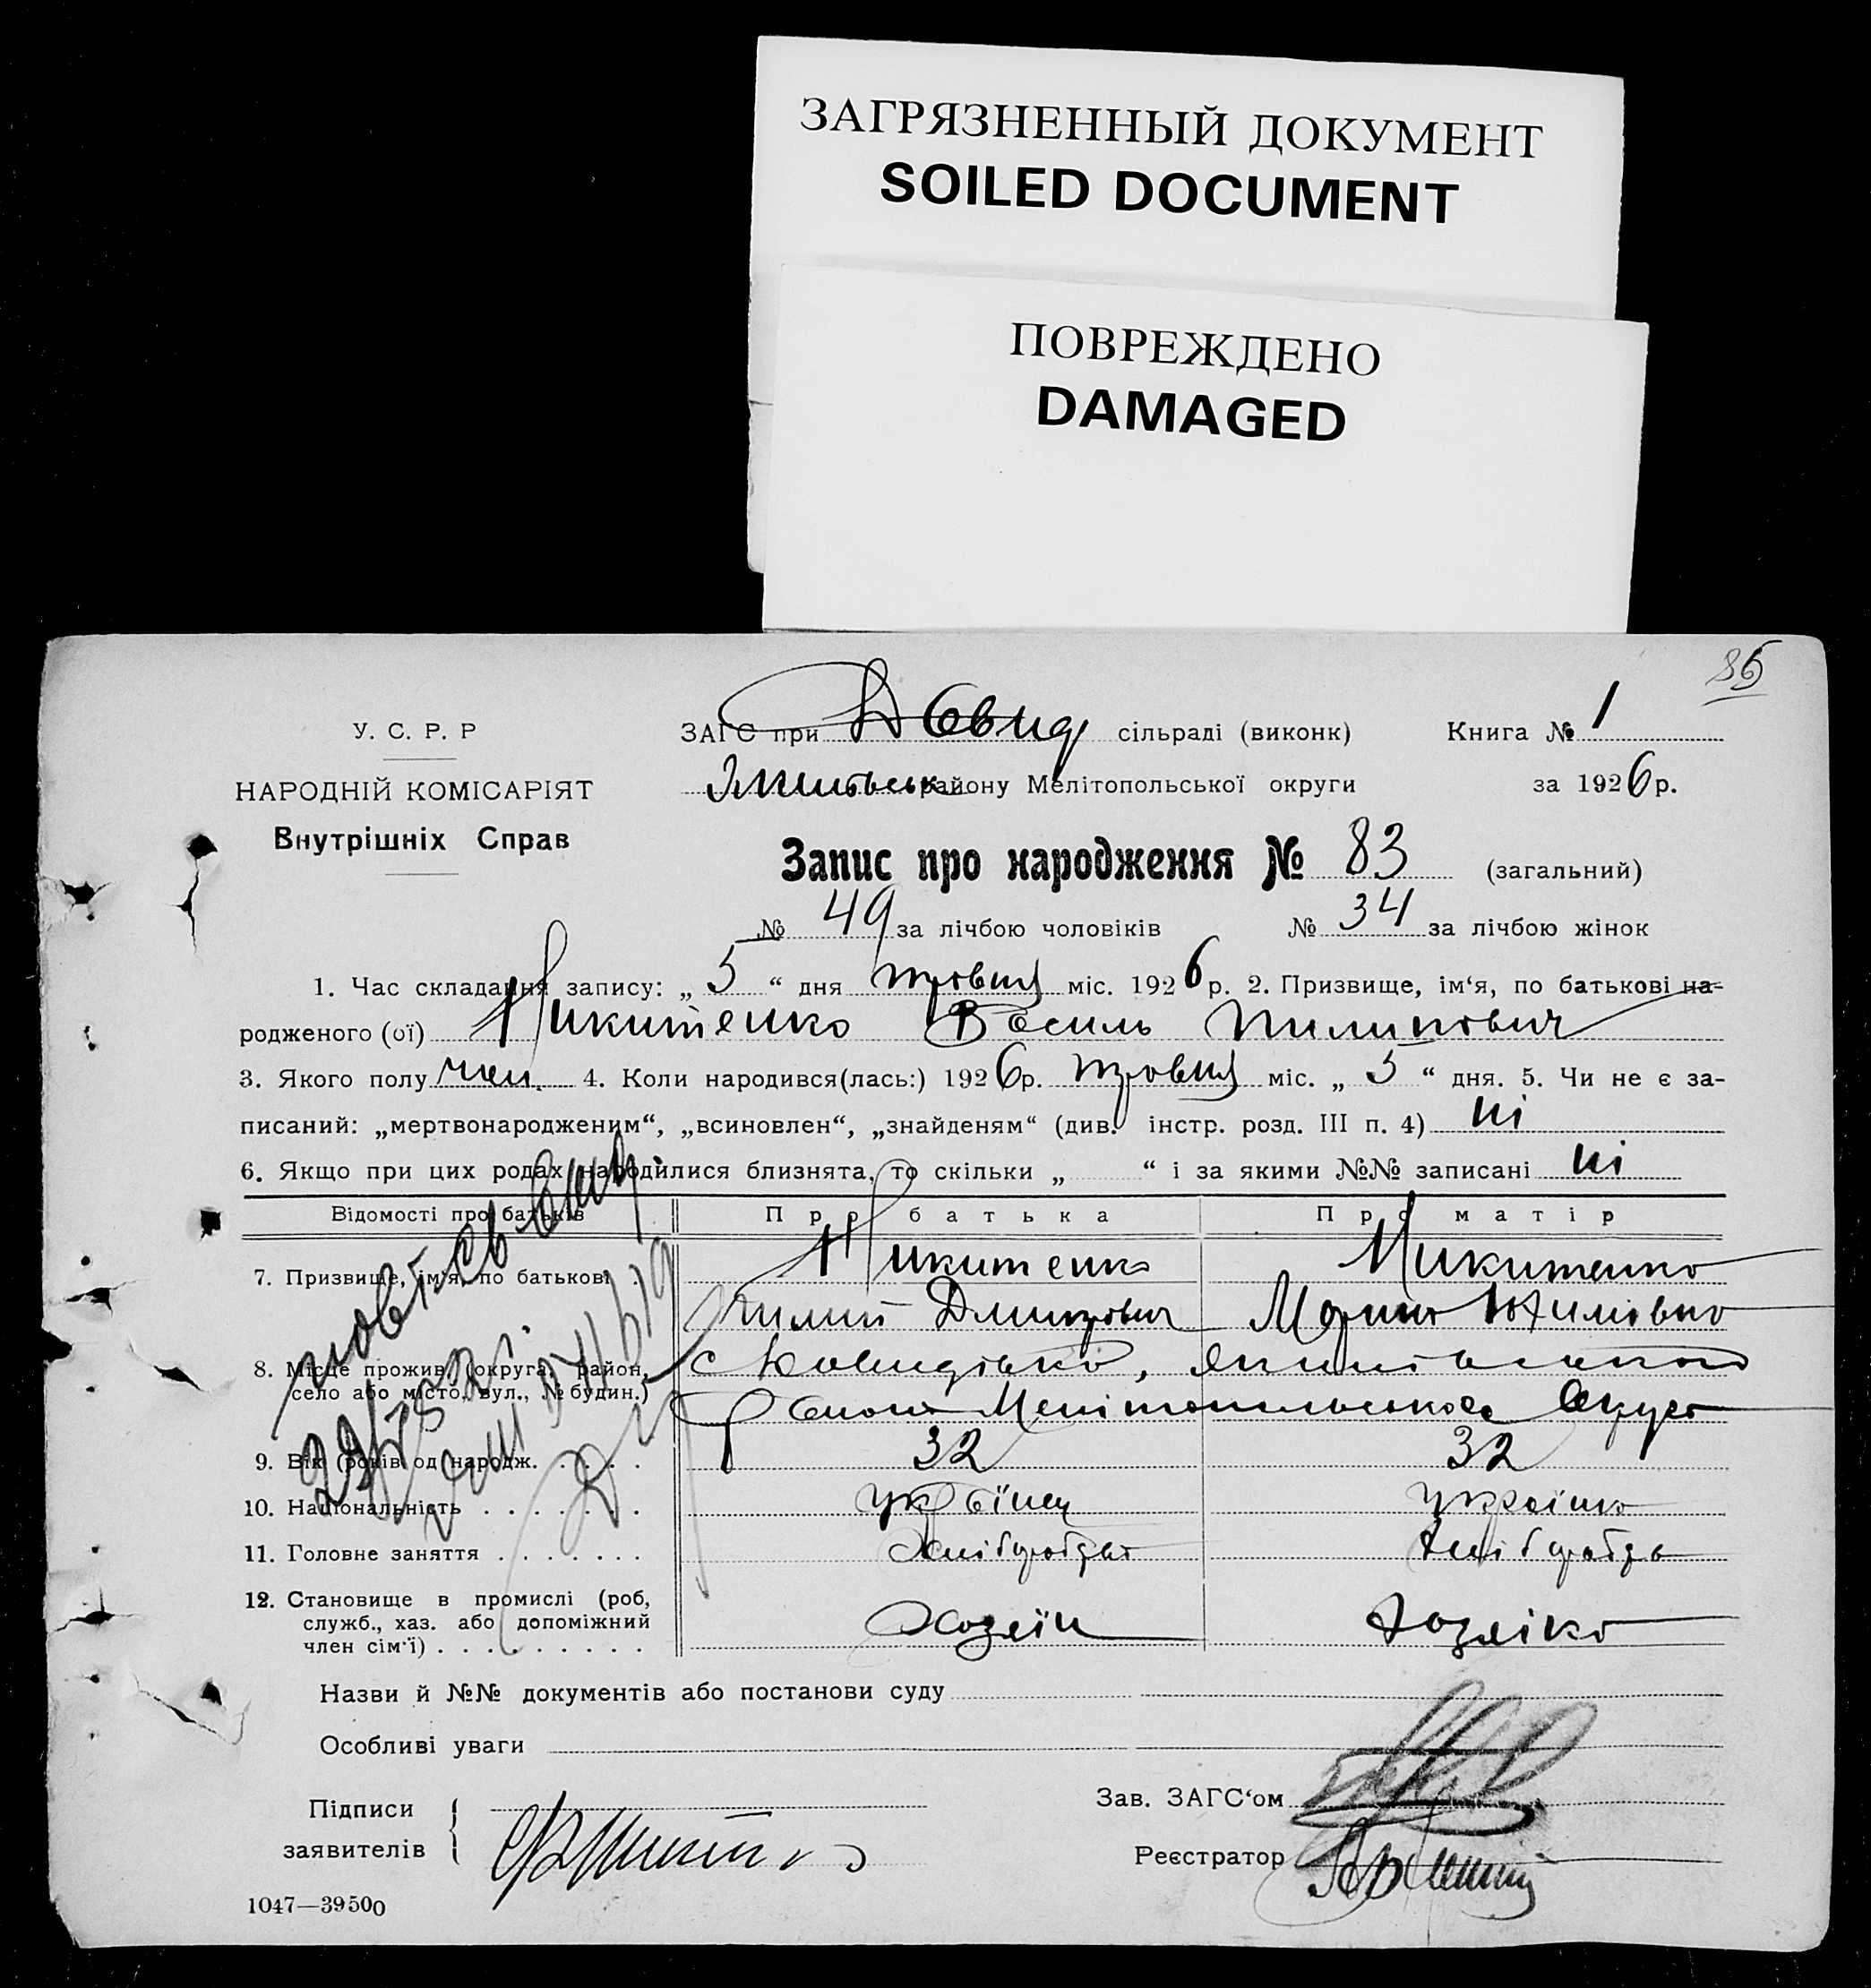 ЗАГРЯЗНЕННЫЙ ДОКУМЕНТ
SOILED DOCUMENT
ПОВРЕЖДЕНО
DAMAGED
85
У. С. Р. Р
НАРОДНІЙ КОМІСАРІЯТ
Внутрішніх Справ
ЗАГС при Давид сільраді (виконк) Книга № 1
району Мелітопольської округи за 1926 р.
Запис про народження № 83 (загальний)
№ 49 за лічбою чоловіків № 34 за лічбою жінок
1. Час складання запису: „ 5 “ дня травня міс. 1926 р. 2. Призвище, ім‘я, по батькові на-
родженого (ої) Микитенко Василь Пилипович
3. Якого полу чол. 4. Коли народився(лась:) 1926 р. травня міс. „ 5 “ дня. 5. Чи не є за-
писаний: „мертвонародженим“, „всиновлен“, „знайденям“ (див. інстр. розд. III п. 4) ні
6. Якщо при цих родах народилися близнята, то скільки „ “ і за якими №№ записані ні
Відомості про батьків Про батька Про матір
7. Призвище, ім‘я, по батькові . Микитенко Микитенко
Пилип Дмитрович
8. Місце прожив. (округа, район, с Давидівка, Якимівського
село або місто, вул., № будин.) Району Мелітопольської Округи
9. Вік (років од народж. . . . . 32 32
10. Національність . . . . . . . Українец Українка
11. Головне заняття . . . . . . . Хліборобство Хліборобство
12. Становище в промислі (роб,
служб., хаз. або допоміжний
член сім‘ї) . . . . . . . . . Хозяїн Хозяїка
Назви й №№ документів або постанови суду
Особливі уваги
Підписи
заявителів
Зав. ЗАГС‘ом
Реєстратор
1047—39500